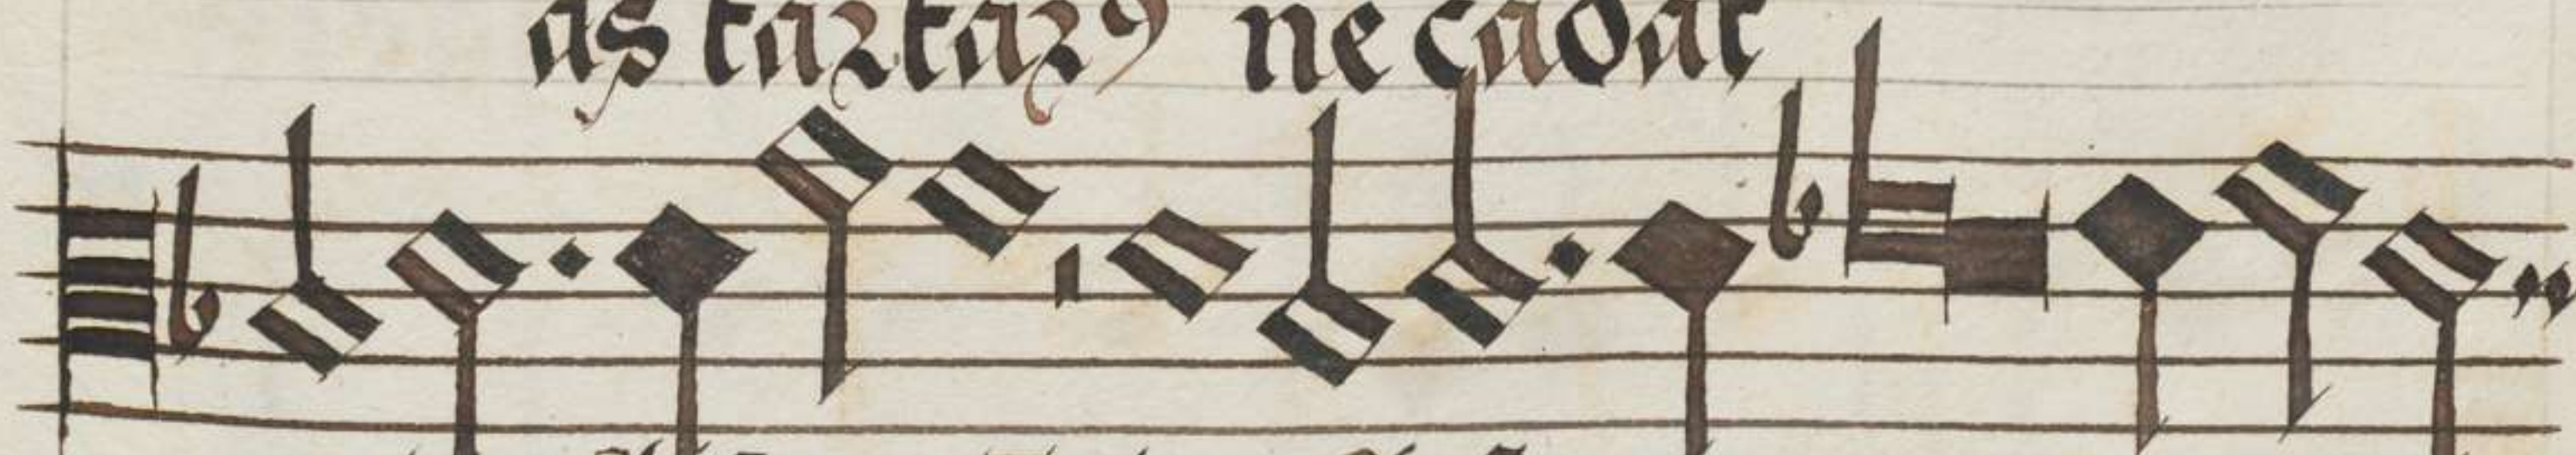 as tartarꝰ ne cadat